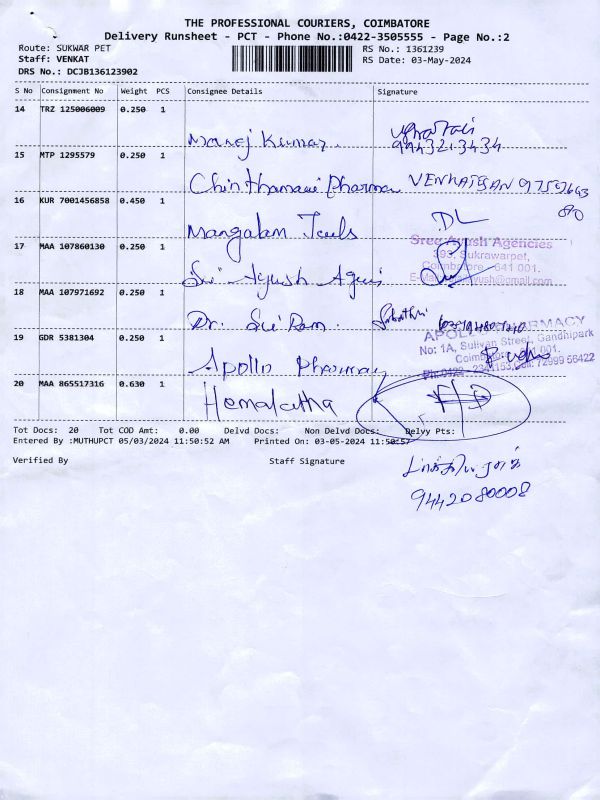 THE PROFESSIONAL COURIERS, COIMBATORE
Delivery Runsheet - PCT - Phone No.:0422-3505555 - Page No.:2
Route: SUKWAR PET
RS No.: 1361239
Staff: VENKAT
RS Date: 03-May-2024
DRS No.: DCJB136123902
S No Consignment No Weight PCS Consignee Details Signature
14 TRZ 125006009 0.250 1
Manoj Kumar
99432.3434
15 MTP 1295579 0.250 1
Chinthamani Pharma VENKATESAN
16 KUR 7001456858 0.450 1
Mangalam Jewls DL
17 MAA 107860130 0.250 1
Sree Ayush Agencies
393, Sukrawarpet,
Coimbatore - 641 001.
Sri Ayush Agencies
18 MAA 107971692 0.250 1
Dr. Sri Ram.
19 GDR 5381304 0.250 1
APOLLO PHARMACY
No: 1A, Sullivan Street, Gandhipark
Coimbatore - 641 001.
Apollo Pharmacy
20 MAA 865517316 0.630 1
Hemalatha
Tot Docs: 20 Tot COD Amt: 0.00 Delvd Docs: Non Delvd Docs: Delvy Pts:
Entered By :MUTHUPCT 05/03/2024 11:50:52 AM Printed On: 03-05-2024 11:50:57
Verified By Staff Signature
9442080008